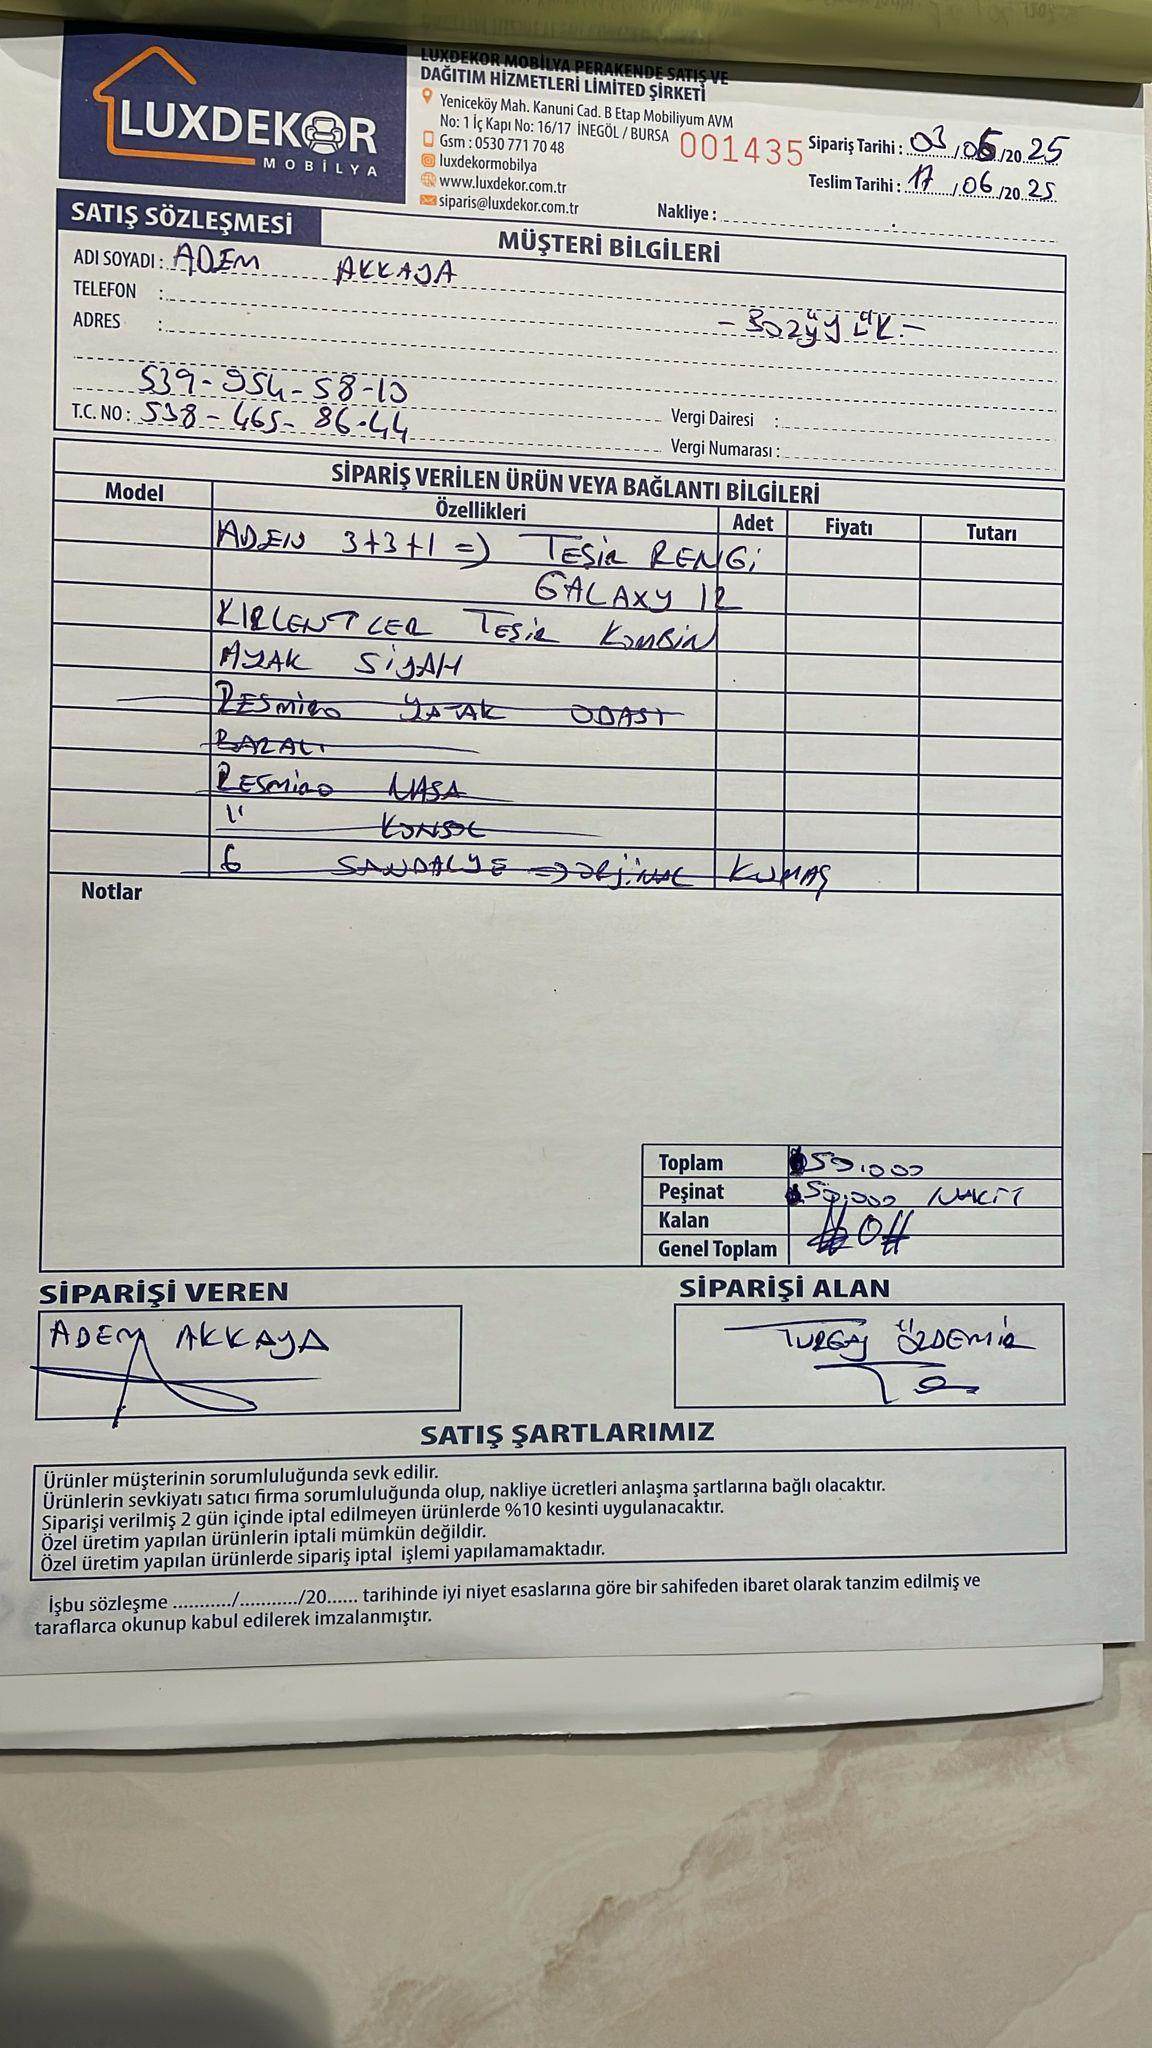 LUXDEKOR
MOBİLYA
LUXDEKOR MOBİLYA PERAKENDE SATIŞ VE
DAĞITIM HİZMETLERİ LİMİTED ŞİRKETİ
Yeniceköy Mah. Kanuni Cad. B Etap Mobiliyum AVM
No: 1 İç Kapı No: 16/17 İNEGÖL / BURSA
Gsm : 0530 771 70 48
luxdekormobilya
www.luxdekor.com.tr
siparis@luxdekor.com.tr
001435
Sipariş Tarihi : 03/06/2025
Teslim Tarihi : 17/06/2025
Nakliye :
SATIŞ SÖZLEŞMESİ
MÜŞTERİ BİLGİLERİ
ADI SOYADI : ADEM AKKAYA
TELEFON :
ADRES : - BOZÜYÜK -
539-954-58-10
T.C. NO : 538-465-86-44
Vergi Dairesi :
Vergi Numarası :
SİPARİŞ VERİLEN ÜRÜN VEYA BAĞLANTI BİLGİLERİ
Model Özellikleri Adet Fiyatı Tutarı
ADEN 3+3+1 => TEŞİR RENGİ
GALAXY 12
KIRLENTLER TEŞİR KOMBİN
AYAK SİYAH
RESMİRO YATAK ODASI
BAZALI
RESMİRO MASA
" KONSOL
6 SANDALYE => ORJİNAL KUMAŞ
Notlar
Toplam 50.000
Peşinat 50.000 NAKİT
Kalan #0#
Genel Toplam
SİPARİŞİ VEREN
ADEM AKKAYA
SİPARİŞİ ALAN
TURGAY ÖZDEMİR
SATIŞ ŞARTLARIMIZ
Ürünler müşterinin sorumluluğunda sevk edilir.
Ürünlerin sevkiyatı satıcı firma sorumluluğunda olup, nakliye ücretleri anlaşma şartlarına bağlı olacaktır.
Siparişi verilmiş 2 gün içinde iptal edilmeyen ürünlerde %10 kesinti uygulanacaktır.
Özel üretim yapılan ürünlerin iptali mümkün değildir.
Özel üretim yapılan ürünlerde sipariş iptal işlemi yapılamamaktadır.
İşbu sözleşme ............/............/20...... tarihinde iyi niyet esaslarına göre bir sahifeden ibaret olarak tanzim edilmiş ve
taraflarca okunup kabul edilerek imzalanmıştır.